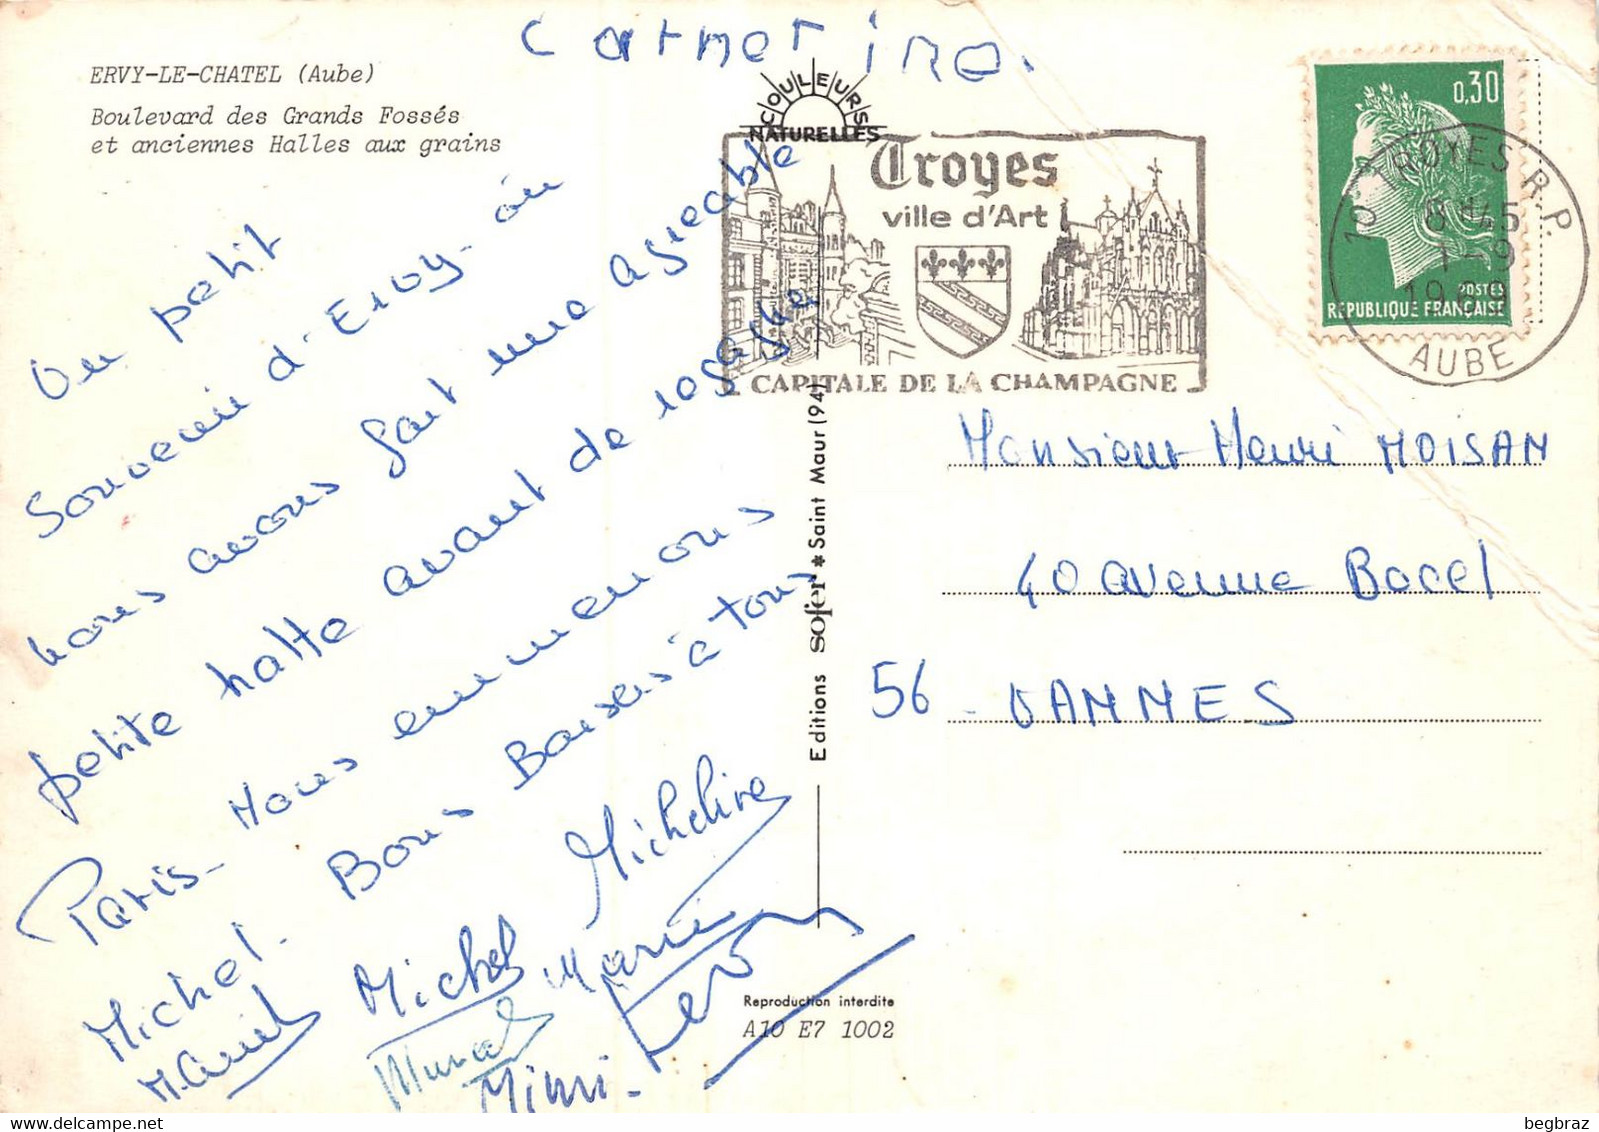 Carmerino.
ERVY-LE-CHATEL (Aube)
Boulevard des Grands Fossés
et anciennes Halles aux grains
COULEURS
NATURELLES
Troyes
ville d'Art
CAPITALE DE LA CHAMPAGNE
0,30
POSTES
REPUBLIQUE FRANÇAISE
10 TROYES R.P.
8H45
1-9
AUBE
Un petit
Souvenir d'Ervy- ou
nous avons fait une agreable
petite halte avant de regagner
Paris- Nous emmenons
Michel. Bons Baisers à tous
Micheline
Michel
Marie
Mimi-
Monsieur Henri MOISAN
40 avenue Bocel
56 - VANNES
Editions sofer * Saint Maur (94)
Reproduction interdite
A10 E7 1002
begbraz